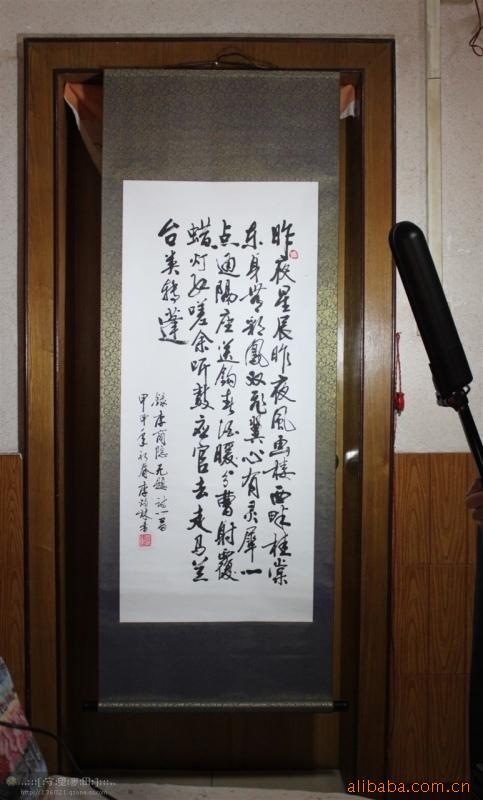 昨夜星辰昨夜风画楼西畔桂棠
东身無彩鳳双飞翼心有灵犀一
点通隔座送钩春酒暖分曹射覆
蜡灯红嗟余听鼓应官去走马兰
台类转蓬
録李商隐无题诗一首
甲申年初春李
alibaba.com.cn